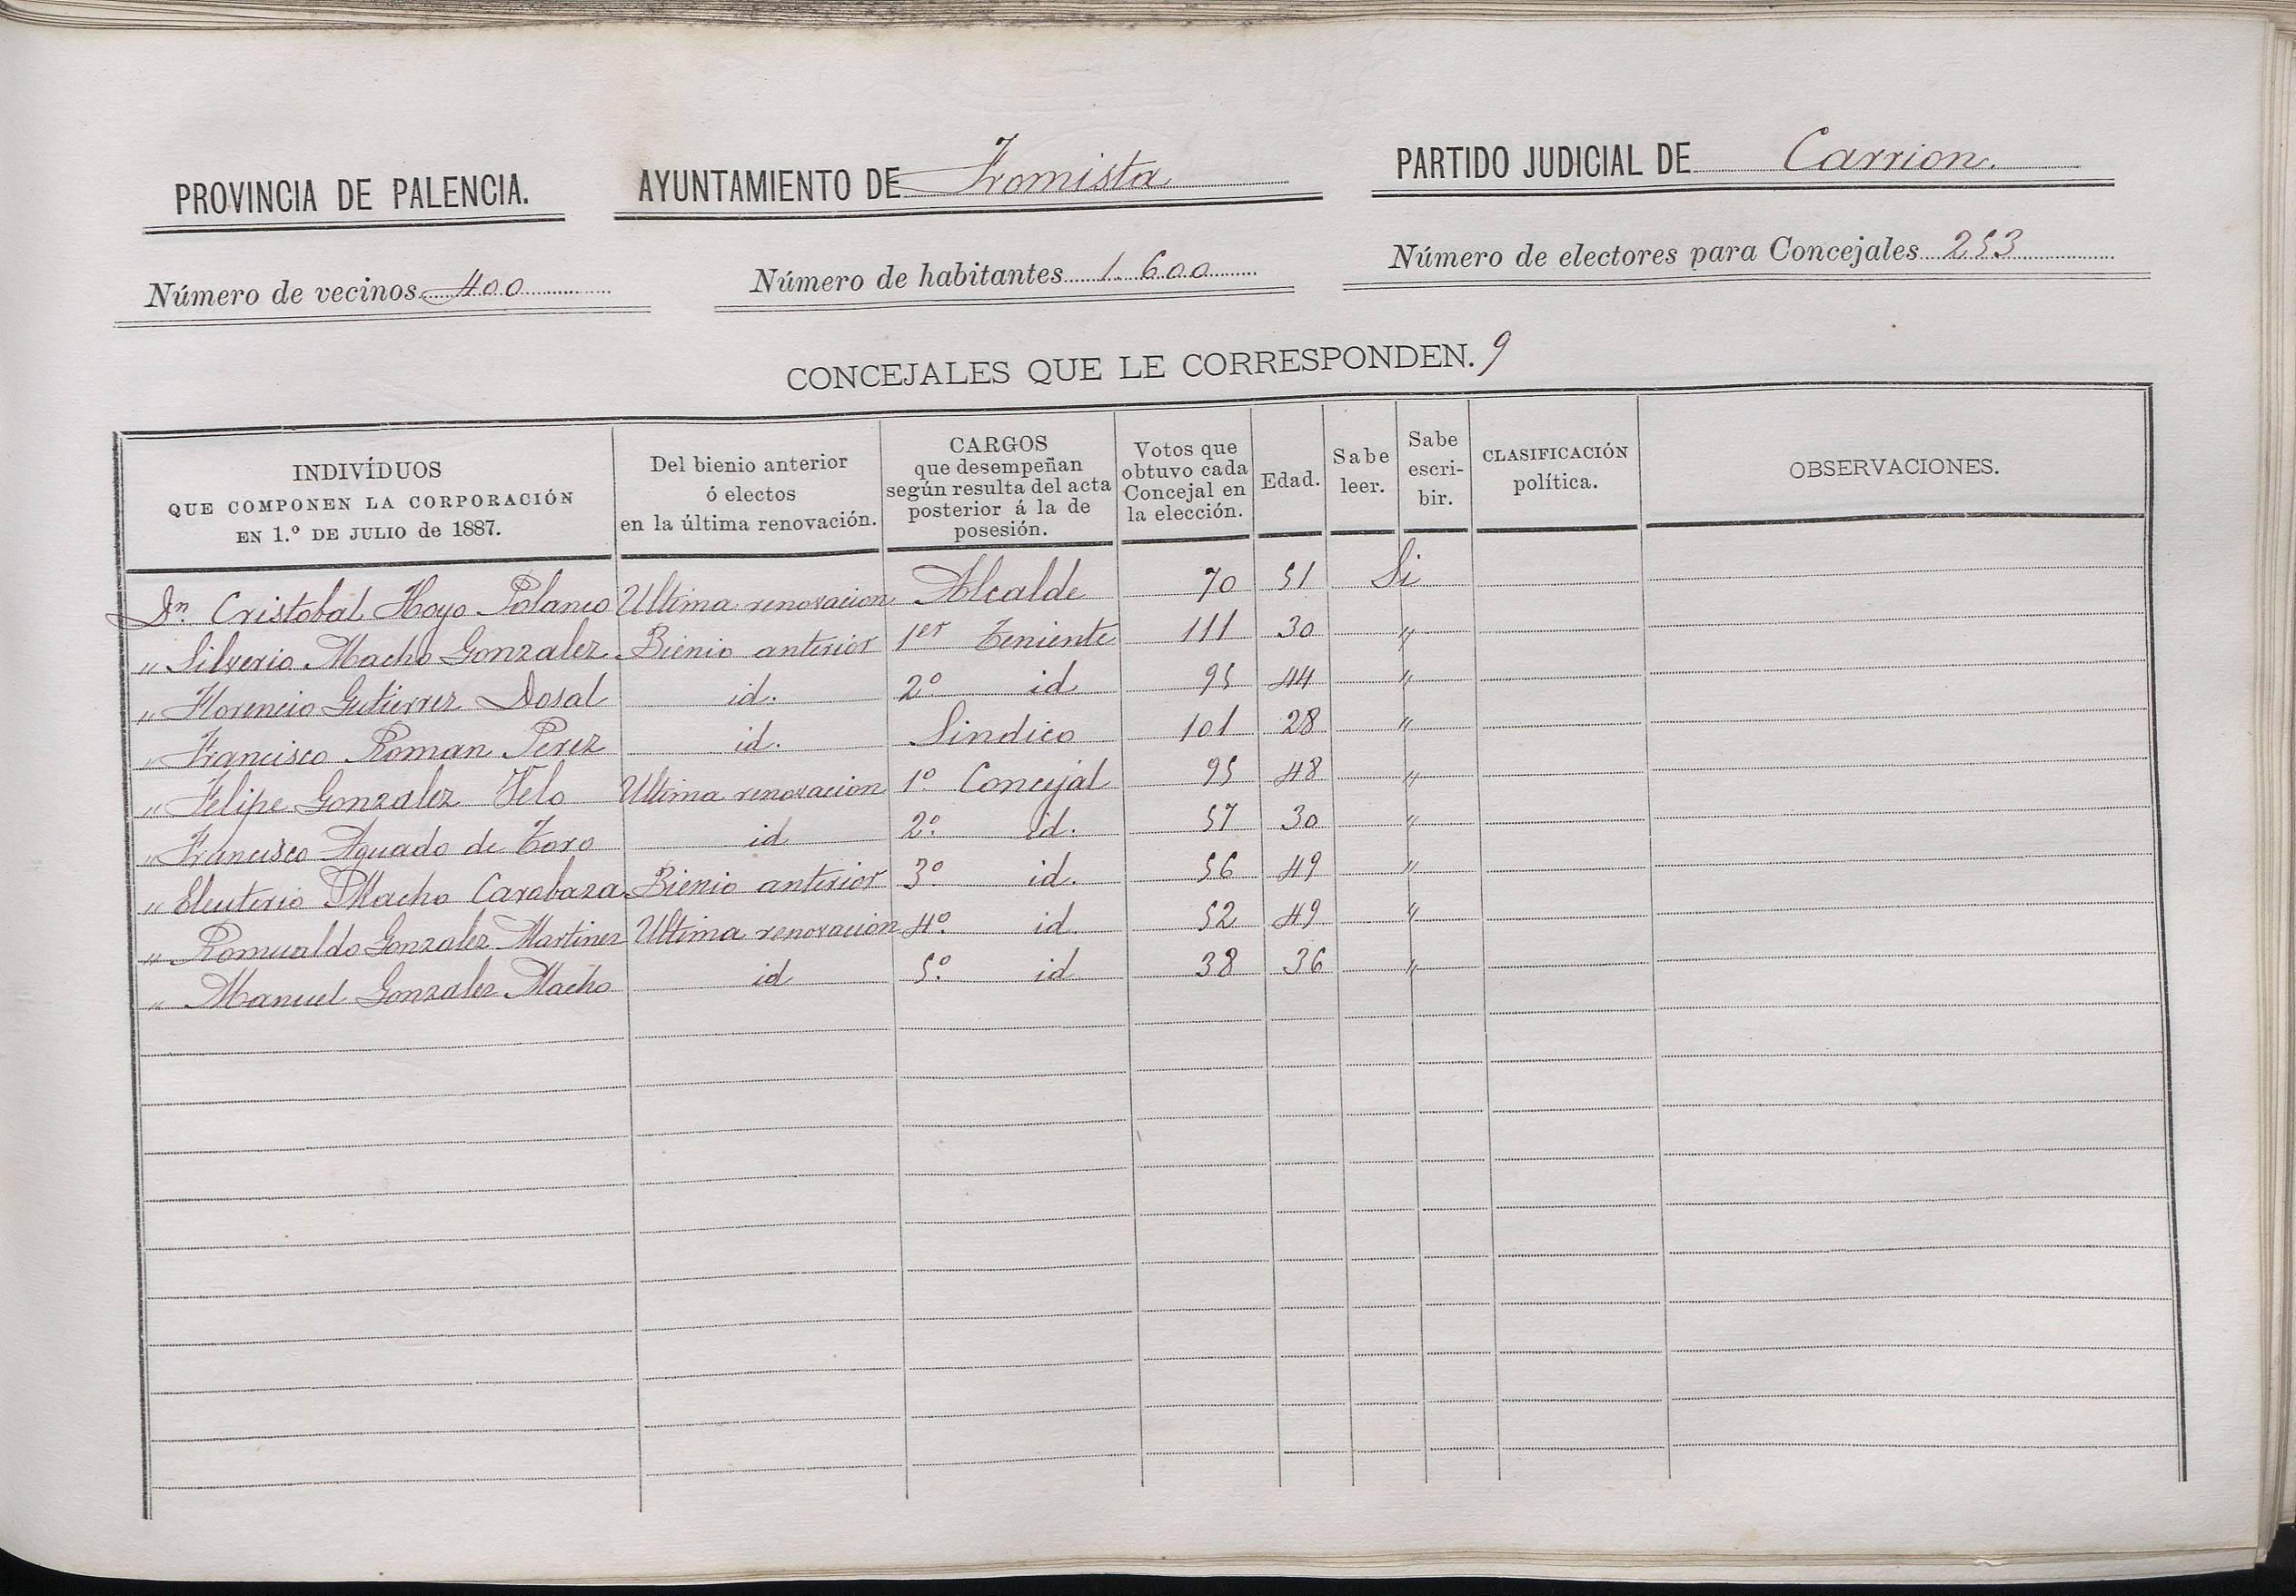 PROVINCIA DE PALENCIA. AYUNTAMIENTO DE Fromista PARTIDO JUDICIAL DE Carrion.
Número de vecinos 400 Número de habitantes 1.600 Número de electores para Concejales 253
CONCEJALES QUE LE CORRESPONDEN. 9
INDIVÍDUOS
QUE COMPONEN LA CORPORACIÓN
EN 1.º DE JULIO de 1887.
Del bienio anterior
ó electos
en la última renovación.
CARGOS
que desempeñan
según resulta del acta
posterior á la de
posesión.
Votos que
obtuvo cada
Concejal en
la elección.
Edad.
Sabe
leer.
Sabe
escri-
bir.
CLASIFICACIÓN
política.
OBSERVACIONES.
Dn. Cristobal Hoyo Polanco Ultima renovacion Alcalde 70 51 Si
" Silverio Macho Gonzalez Bienio anterior 1er Teniente 111 30 "
" Florencio Gutierrez Dosal id. 2º id 95 44 "
" Francisco Roman Perez id. Sindico 101 28 "
" Felipe Gonzalez Velo Ultima renovacion 1º Concejal 95 48 "
" Francisco Aguado de Toro id 2º. id. 57 30 "
" Eleuterio Macho Carabaza Bienio anterior 3º id. 56 49 "
" Romualdo Gonzalez Martinez Ultima renovacion 4º. id. 52 49 "
" Manuel Gonzalez Macho id 5º. id 38 36 "